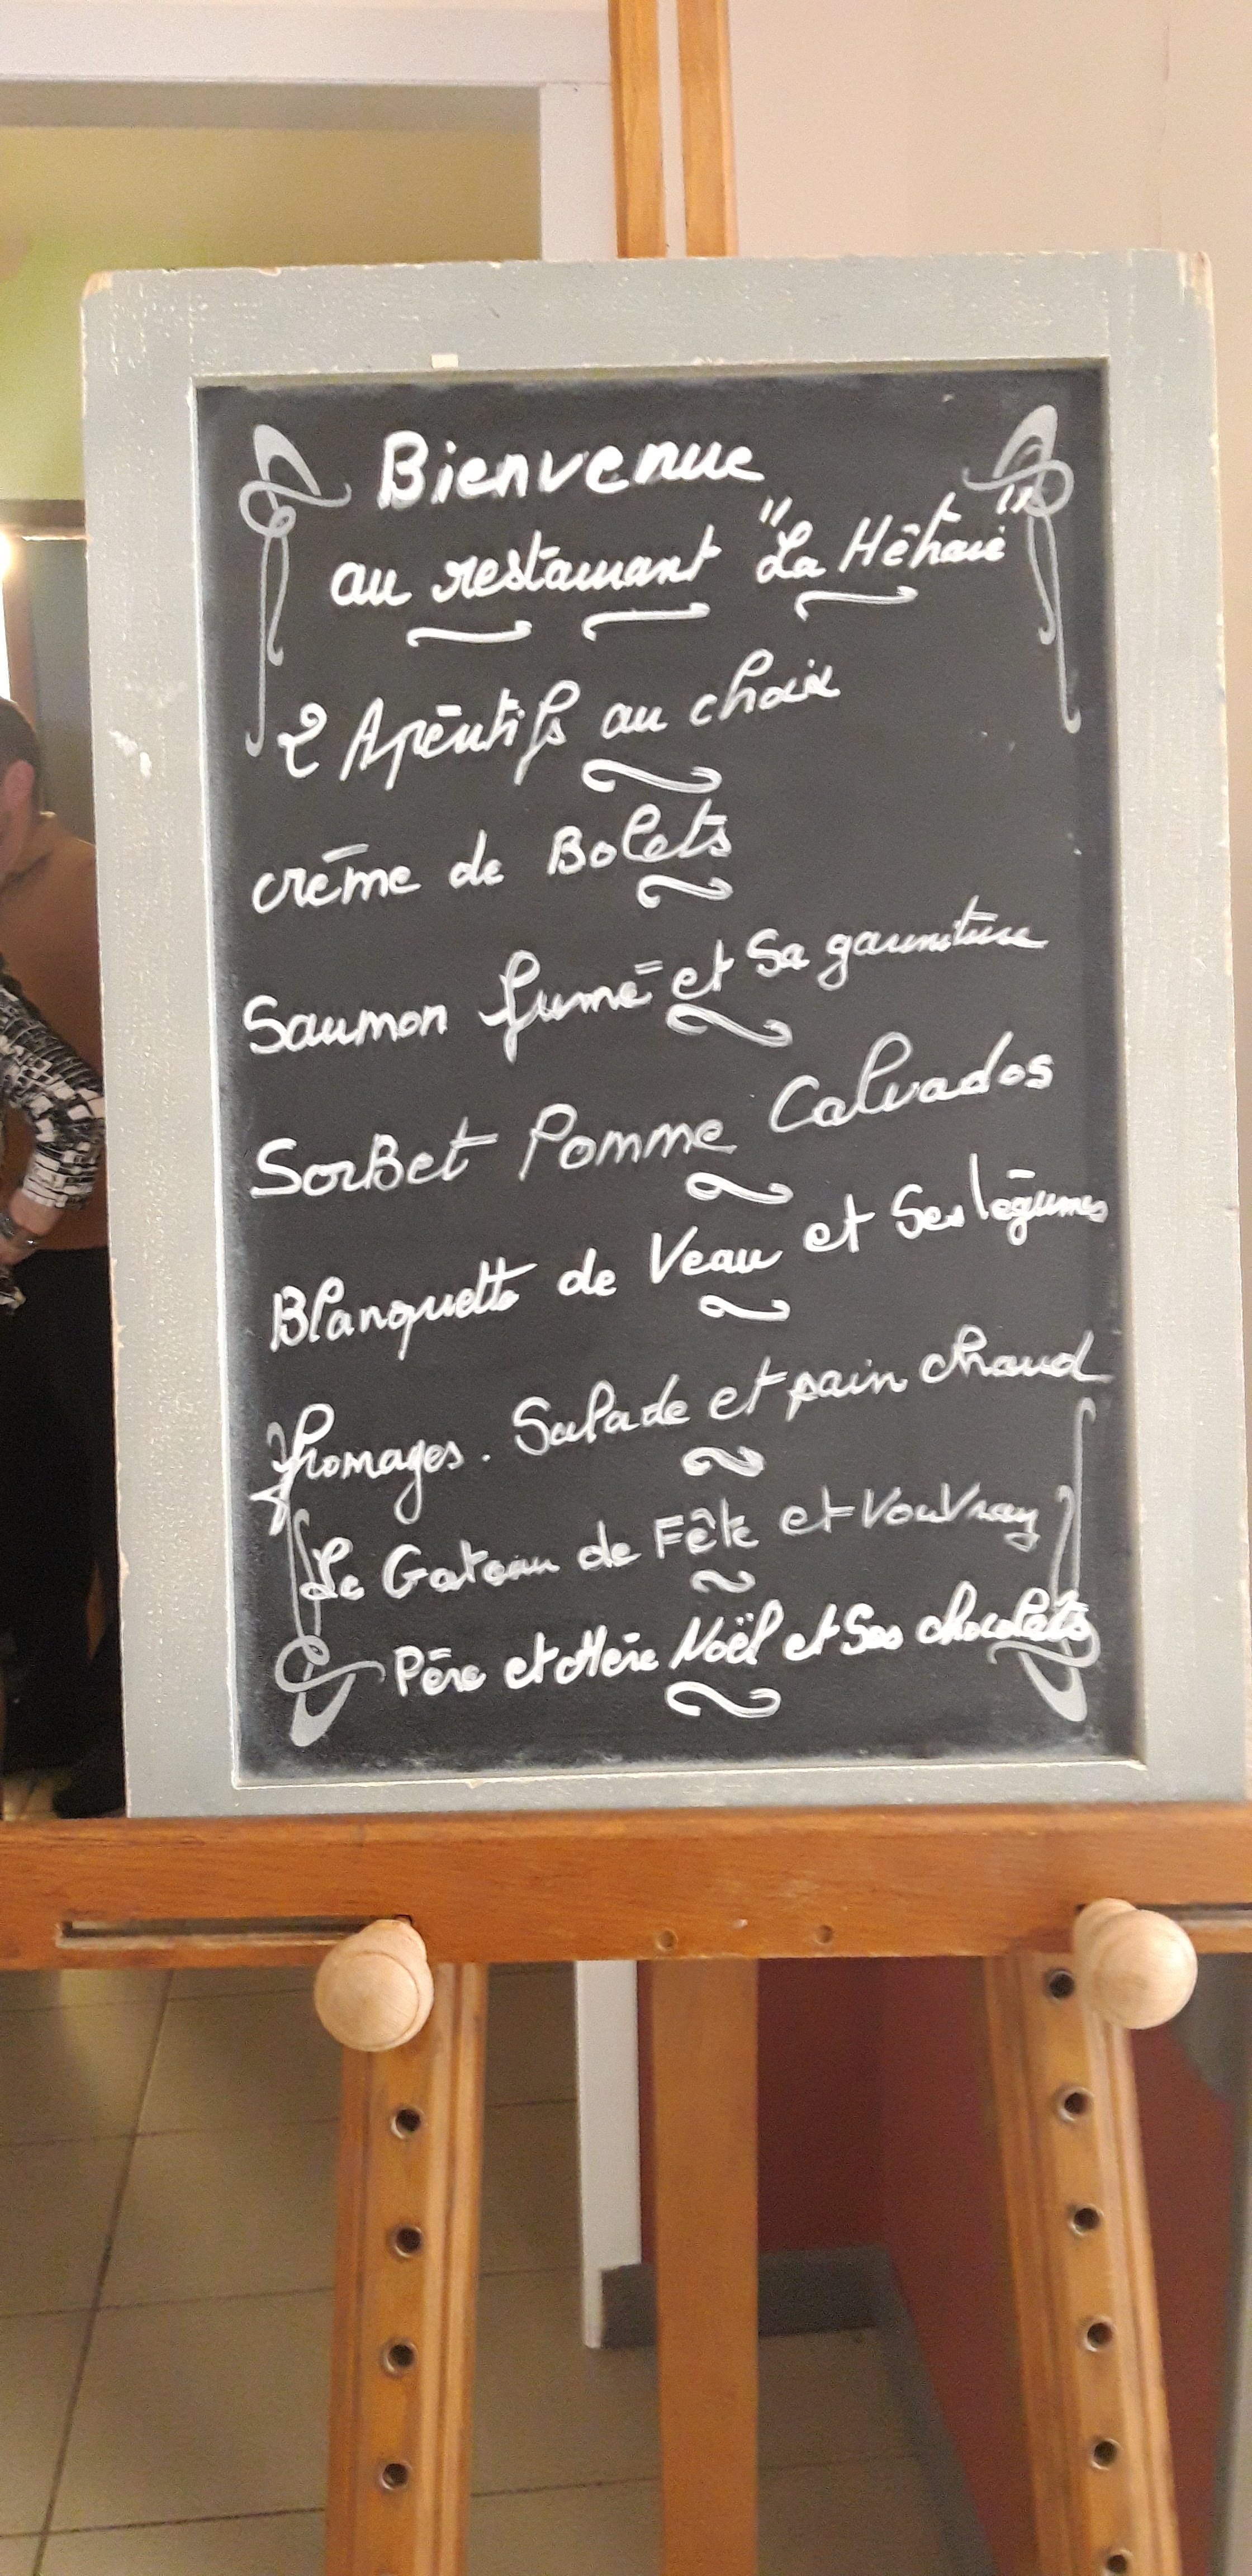 Bienvenue
au restaurant "La Hêtraie"
2 Apéritifs au choix
crème de Bolets
Saumon fumé et Sa garniture
SorBet Pomme Calvados
Blanquette de Veau et Ses légumes
fromages. Salade et pain chaud
Le Gateau de Fête et VouVray
Père et Mère Noël et Ses chocolats